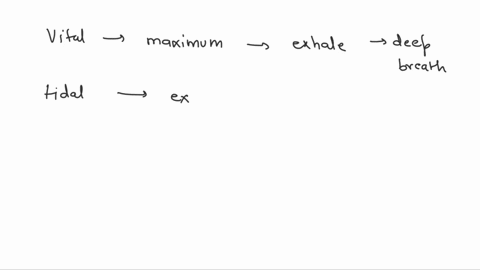 Vital → maximum → exhale → deep
breath
tidal → ex